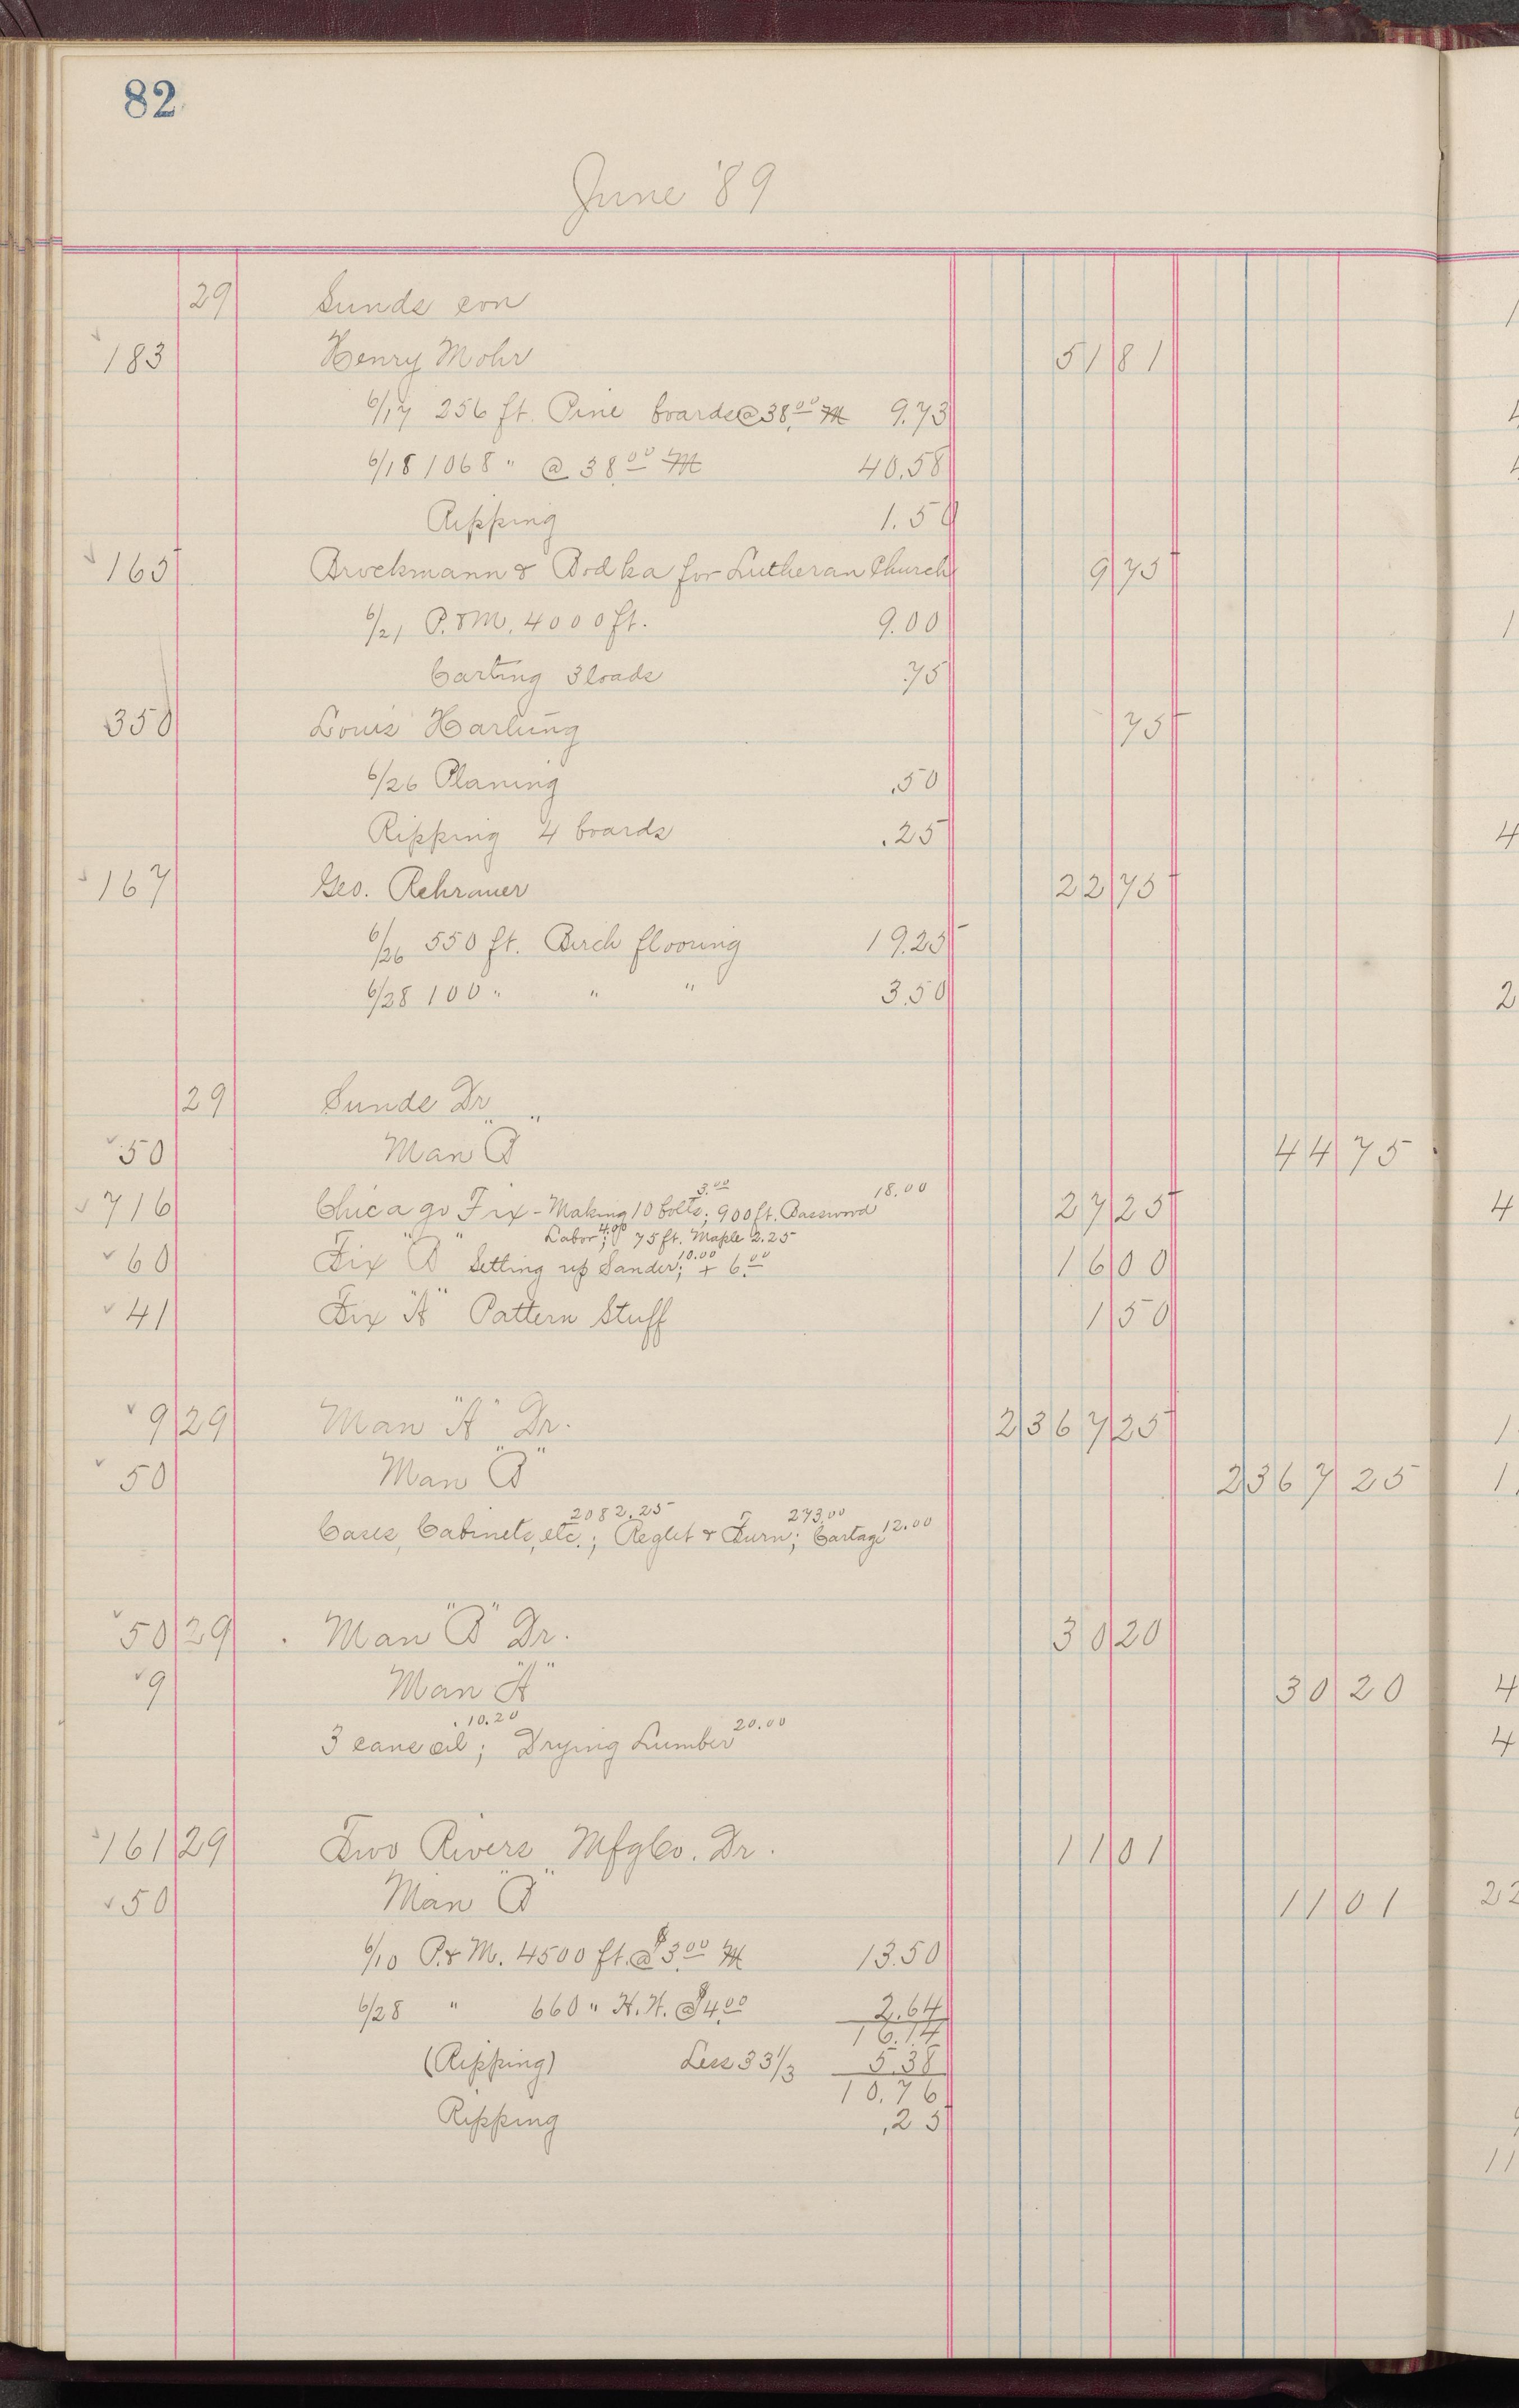 82
June '89
29 Sunds con
183 Henry Mohr 51 81
6/17 256 ft. Pine boards @ 38.00 M 9.73
6/18 1068 " @ 38.00 M 40.58
Ripping 1.50
165 Brockmann & Bodka for Lutheran Church 9 75
6/21 P. & M. 4000 ft. 9.00
Carting 3 loads .75
350 Louis Hartung 75
6/26 Planing .50
Ripping 4 boards .25
167 Geo. Rehrauer 22 75
6/26 550 ft. Birch flooring 19.25
6/28 100 " " " 3.50
29 Sunds Dr
50 Man "B" 44 75
716 Chicago Fix - Making 10 bolts; 3.00 900 ft. Basswood 18.00 27 25
Labor; 4.00 75 ft. Maple 2.25
60 Fix "B" Setting up Sander; 10.00 + 6.00 16 00
41 Fix "A" Pattern Stuff 1 50
9 29 Man "A" Dr. 2367 25
50 Man "B" 2367 25
Cases, Cabinets, etc.; 2082.25 Reglet & Furn; 273.00 Cartage 12.00
50 29 Man "B" Dr. 30 20
9 Man "A" 30 20
3 cans oil; 10.20 Drying Lumber 20.00
161 29 Two Rivers Mfg Co. Dr. 11 01
50 Man "B" 11 01
6/10 P. & M. 4500 ft. @ $3.00 M 13.50
6/28 " 660 " H.W. @ $4.00 2.64
16.14
(Ripping) Less 33 1/3 5.38
10.76
Ripping .25